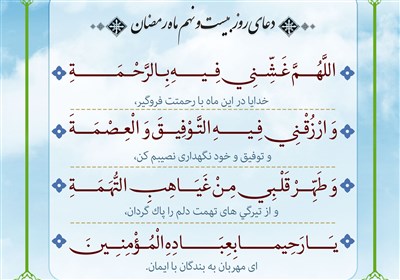 دعای روز بیست و نهم ماه رمضان
اَللّهُمَّ غَشِّنِي فِيهِ بِالرَّحْمَةِ
خدایا در این ماه با رحمتت فروگیر،
وَ ارْزُقْنِي فِيهِ التَّوْفِيقَ وَ الْعِصْمَةَ
و توفیق و خود نگهداری نصیبم کن،
وَ طَهِّرْ قَلْبِي مِنْ غَيَاهِبِ التُّهَمَةِ
و از تیرگی های تهمت دلم را پاک گردان،
يَا رَحِيما بِعِبَادِهِ الْمُؤْمِنِينَ
ای مهربان به بندگان با ایمان.